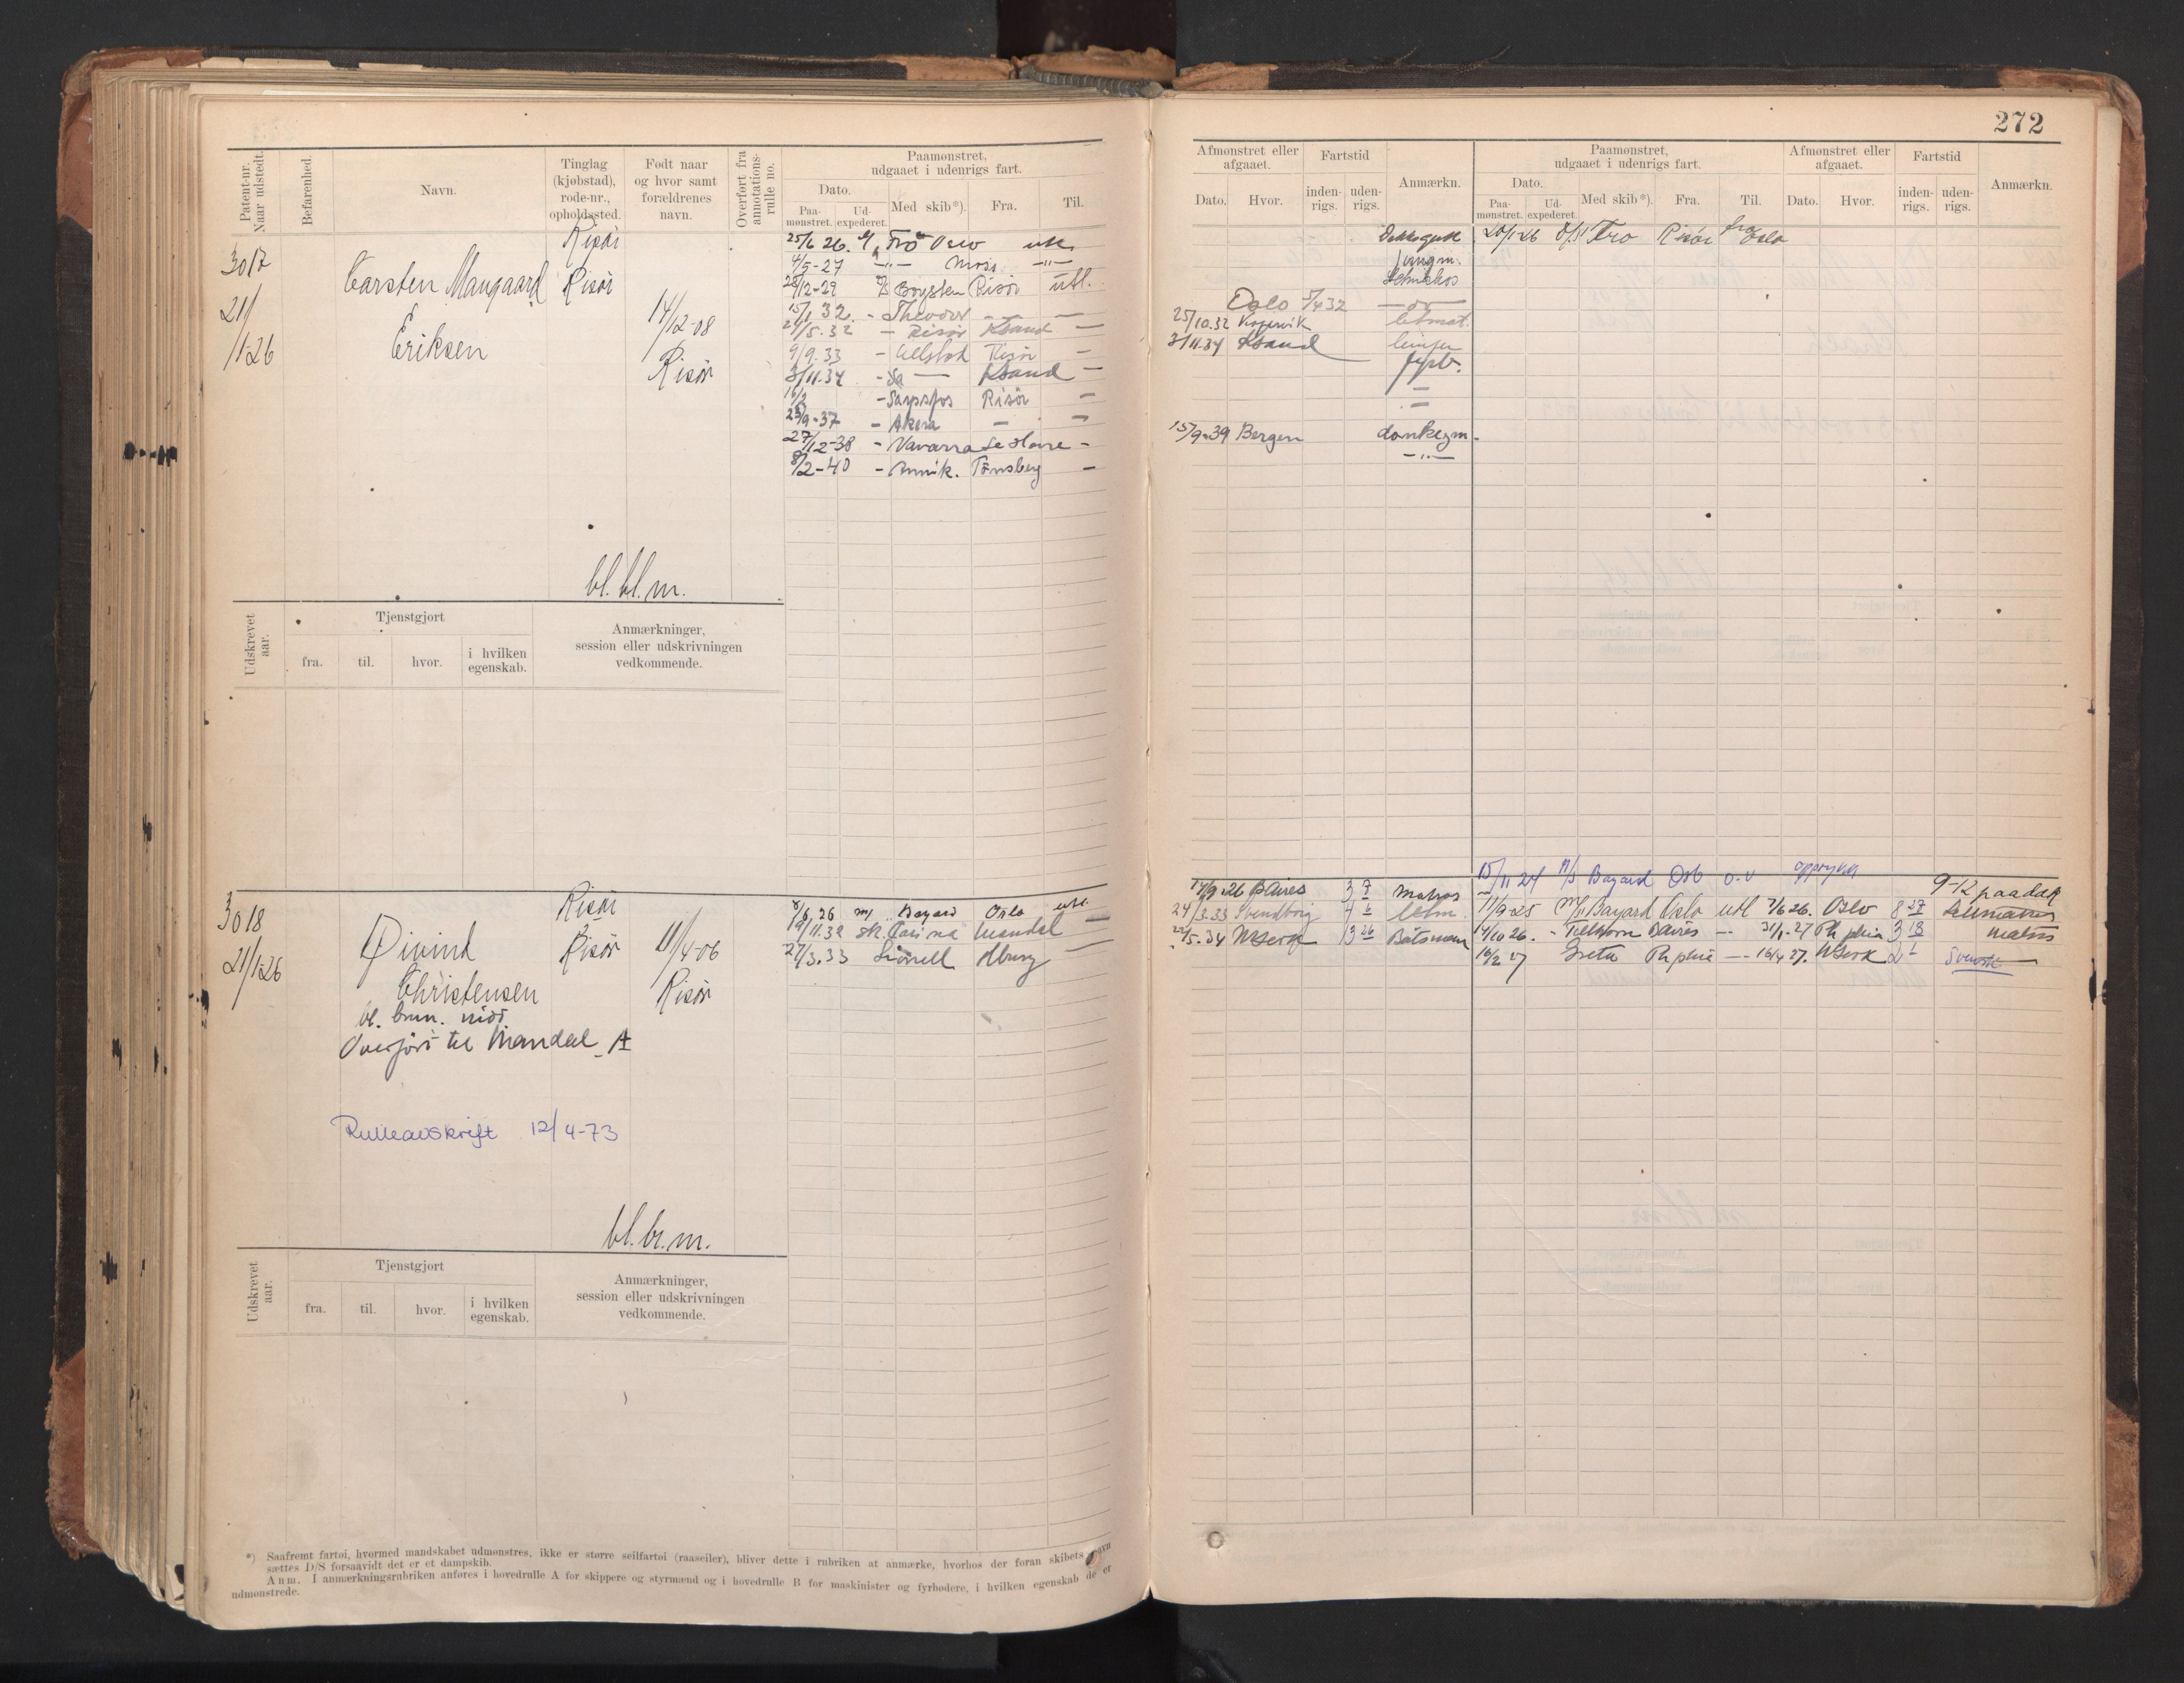 272
Patent-nr. Naar udstedt.
Befarenhed.
Navn.
Tinglag (kjøbstad), rode-nr., opholdssted.
Født naar og hvor samt forældrenes navn.
Overført fra annotations-rulle no.
Paamønstret, udgaaet i udenrigs fart.
Dato.
Paa-mønstret. Ud-expederet.
Med skib*).
Fra.
Til.
Afmønstret eller afgaaet.
Dato.
Hvor.
Fartstid
inden-rigs.
uden-rigs.
Anmærkn.
Paamønstret, udgaaet i udenrigs fart.
Dato.
Paa-mønstret. Ud-expederet.
Med skib*).
Fra.
Til.
Afmønstret eller afgaaet.
Dato.
Hvor.
Fartstid
inden-rigs.
uden-rigs.
Anmærkn.
3017
21/1-26
Carsten Mangaard
Eriksen
Risør
Risør
14/12-08
Risør
25/6 26. Fro Oslo utl.
4/5-27 -"- Moss -"-
28/12-29 Boysten Risør utl.
15/1 32. - Theodor - -
24/5.32 - Risør Ksand -
9/9.33 - Risør -
3/11.34 - Ksand -
16/2 - Sarpsfos Risør -
23/9-37 - Akera - -
27/12-38 - Navarra Le Havre -
8/2-40 - Annik. Tønsberg -
Dekksgutt
Jungm.
Oslo 5/4 32
25/10.32
3/11.34 Ksand
fyrb.
15/9-39 Bergen donkeym.
-"-
20/1-26 D/S Fro Risør fra Oslo
bl. bl. m.
Udskrevet aar.
Tjenstgjort
fra.
til.
hvor.
i hvilken egenskab.
Anmærkninger, session eller udskrivningen vedkommende.
3018
21/1-26
Øivind
Christensen
bl. brun. mid
Overført til Mandal A
Risør
Risør
11/4-06
Risør
Rulleavskrift 12/4-73
8/6.26 m/ Bayard Oslo utl.
19/11.32 sk. Carina Mandal -
27/3.33 -
17/9.26 BAires 3 7 Matros
24/3.33 Svendborg 4 6
5.34 3 26 Båtsmann
15/11 24 M/S Bayard Osl o.v
9-12 paa dæk
11/9-25 M/S Bayard Oslo utl 7/6 26. Oslo 8 27
14/10 26. - BAires - 31/1-27 Ph phia 3 18 matros
16/2 27 Greta Ph phia - 16/4 27. 2 1 Svensk
bl. br. m.
Udskrevet aar.
Tjenstgjort
fra.
til.
hvor.
i hvilken egenskab.
Anmærkninger, session eller udskrivningen vedkommende.
*) Saafremt fartøi, hvormed mandskabet udmønstres, ikke er større seilfartøi (raaseiler), bliver dette i rubriken at anmærke, hvorhos der foran skibets navn
sættes D/S forsaavidt det er et dampskib.
Anm. I anmærkningsrubriken anføres i hovedrulle A for skippere og styrmænd og i hovedrulle B for maskinister og fyrbødere, i hvilken egenskab de er
udmønstrede.